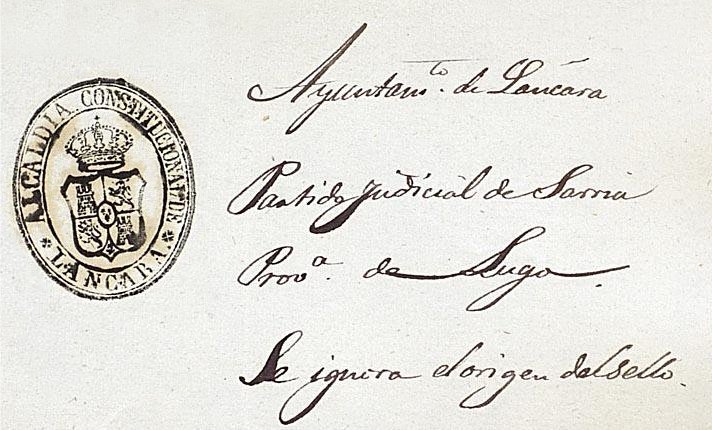 ALCALDIA CONSTITUCIONAL DE
* LANCARA. *
Ayuntam.to de Láncara
Partido judicial de Sarria
Prov.a de Lugo.
Se ignora el origen del sello.